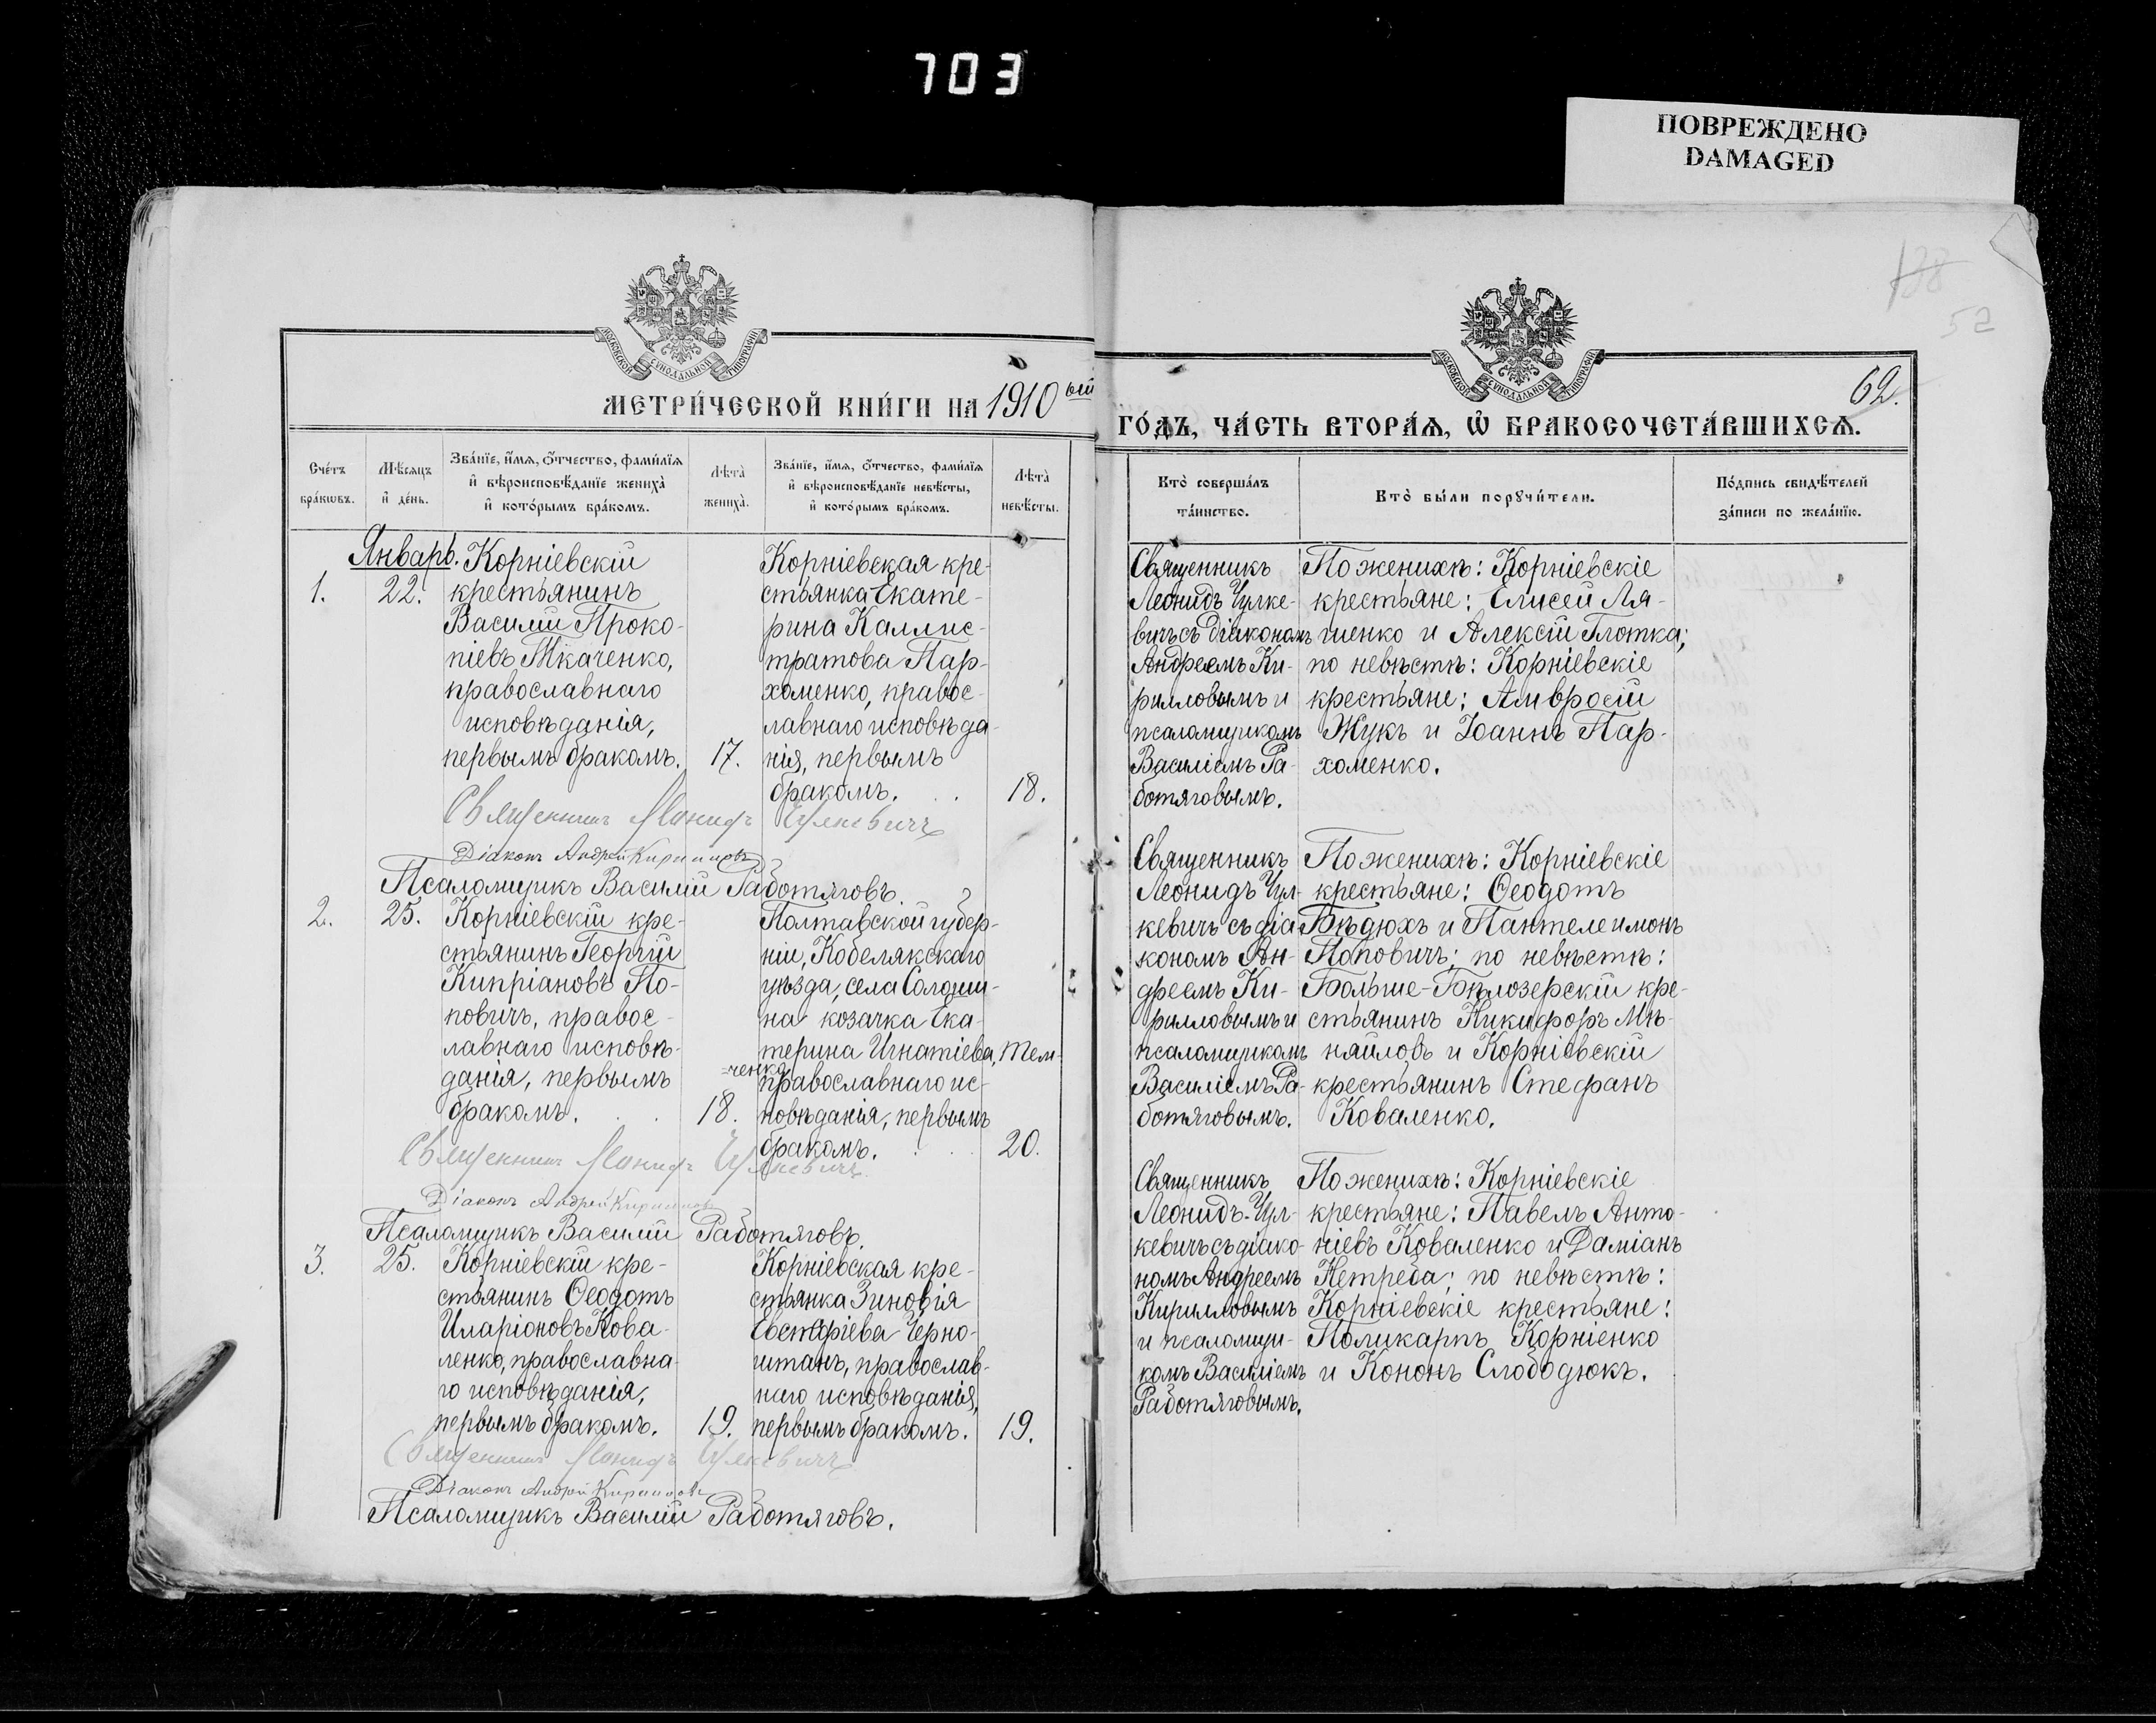 703
ПОВРЕЖДЕНО
DAMAGED
138
52
МОСКОВСКОЙ СѴНОДАЛЬНОЙ ТИПОГРАФІИ
МОСКОВСКОЙ СѴНОДАЛЬНОЙ ТИПОГРАФІИ
62.
МЕТРИ́ЧЕСКОЙ КНИ́ГИ НА 1910 ый
ГО́ДЪ, ЧА́СТЬ ВТОРА́Ѧ, Ѽ БРАКОСОЧЕТА́ВШИХСѦ.
Сче́тъ
бра́кѡвъ.
Мѣ́сѧцъ
и҆ де́нь.
Зва́нїе, и҆́мѧ, ѻ҆́тчество, фами́лїѧ
и҆ вѣроисповѣ́данїе жениха̀
и҆ кото́рымъ бра́комъ.
Лѣта̀
жениха̀.
Зва́нїе, и҆́мѧ, ѻ҆́тчество, фами́лїѧ
и҆ вѣроисповѣ́данїе невѣ́сты,
и҆ кото́рымъ бра́комъ.
Лѣта̀
невѣ́сты.
Кто̀ соверша́лъ
та́инство.
Кто̀ бы́ли порꙋчи́тели.
По́дпись свидѣ́телей
за́писи по жела́нїю.
Январь.
1.
22.
Корніевскій
крестьянинъ
Василій Проко-
піевъ Ткаченко,
православнаго
исповѣданія,
первымъ бракомъ.
17.
Корніевская кре-
стьянка Екате-
рина Каллис-
тратова Пар-
хоменко, правос-
лавнаго исповѣда-
нія, первымъ
бракомъ.
18.
Священникъ
Леонидъ Чулке-
вичъ съ діакономъ
Андреемъ Ки-
рилловымъ и
псаломщикомъ
Василіемъ Ра-
ботяговымъ.
По женихѣ: Корніевскіе
крестьяне: Елисей Ля-
шенко и Алексій Глотка;
по невѣстѣ: Корніевскіе
крестьяне: Амвросій
Жукъ и Іоаннъ Пар-
хоменко.
Священникъ Леонидъ Чулкевичъ
Діаконъ Андрей Кирилловъ
Псаломщикъ Василій Работяговъ.
2.
25.
Корніевскій кре-
стьянинъ Георгій
Кипріановъ По-
повичъ, правос-
лавнаго исповѣ-
данія, первымъ
бракомъ.
18.
Полтавской губер-
ніи, Кобелякскаго
уѣзда, села Солоши-
на козачка Ека-
терина Игнатіева, Тем-
=ченко
православнаго ис-
повѣданія, первымъ
бракомъ.
20.
Священникъ
Леонидъ Чул-
кевичъ съ діа-
кономъ Ан-
дреемъ Ки-
рилловымъ и
псаломщикомъ
Василіемъ Ра-
ботяговымъ.
По женихѣ: Корніевскіе
крестьяне: Ѳеодотъ
Бѣдюхъ и Пантелеимонъ
Поповичъ; по невѣстѣ:
Больше-Бѣлозерскій кре-
стьянинъ Никифоръ Мѣ-
няйловъ и Корніевскій
крестьянинъ Стефанъ
Коваленко.
Священникъ Леонидъ Чулкевичъ
Діаконъ Андрей Кирилловъ
Псаломщикъ Василій Работяговъ.
3.
25.
Корніевскій кре-
стьянинъ Ѳеодотъ
Иларіоновъ Кова-
ленко, православна-
го исповѣданія,
первымъ бракомъ.
19.
Корніевская кре-
стьянка Зиновія
Евстафіева Черно-
штанъ, православ-
наго исповѣданія,
первымъ бракомъ.
19.
Священникъ
Леонидъ Чул-
кевичъ съ діако-
номъ Андреемъ
Кирилловымъ
и псаломщи-
комъ Василіемъ
Работяговымъ.
По женихѣ: Корніевскіе
крестьяне: Павелъ Анто-
ніевъ Коваленко и Даміанъ
Нетреба; по невѣстѣ:
Корніевскіе крестьяне:
Поликарпъ Корніенко
и Кононъ Слободюкъ.
Священникъ Леонидъ Чулкевичъ
Діаконъ Андрей Кирилловъ
Псаломщикъ Василій Работяговъ.